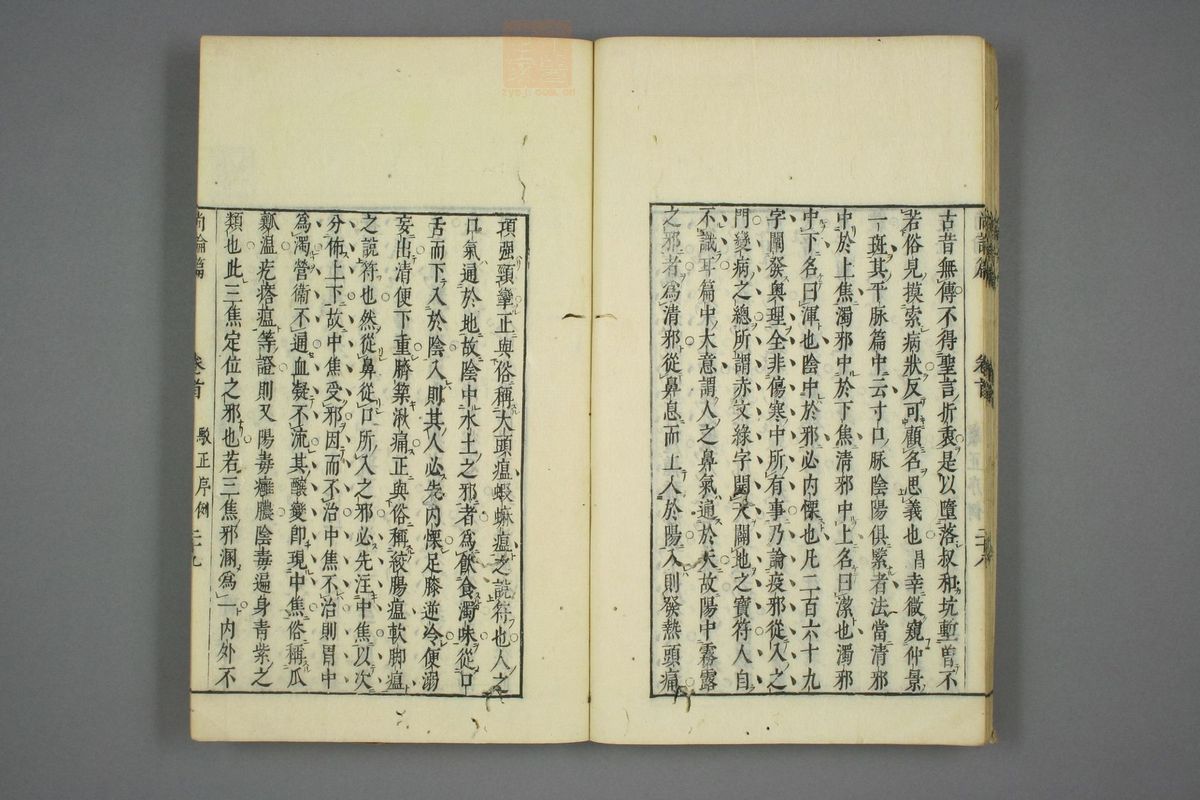 古昔無傳不得聖言折衷是以墮落叔和坑塹曾不
若俗見摸索病狀反可顧名思義也昌幸微窺仲景
一斑其平脉篇中云寸口脉陰陽俱緊者法當清邪
中於上焦濁邪中於下焦清邪中上名曰潔也濁邪
中下名曰渾也陰中於邪必内慄也凡二百六十九
字闡發奥理全非傷寒中所有事乃論疫邪從入之
門變病之總所謂赤文綠字開天闢地之寶符人自
不識耳篇中大意謂人之鼻氣通於天故陽中霧露
之邪者爲清邪從鼻息而上入於陽入則發熱頭痛
項强頸攣正與俗稱大頭瘟蝦蟆瘟之説符也人之
口氣通於地故陰中水土之邪者爲飲食濁味從口
舌而下入於陰入則其人必先内慄足膝逆冷便溺
妄出清便下重臍築湫痛正與俗稱絞腸瘟軟脚瘟
之説符也然從鼻從口所入之邪必先注中焦以次
分佈上下故中焦受邪因而不治中焦不治則胃中
爲濁營衛不通血凝不流其釀變即現中焦俗稱瓜
瓤瘟疙瘩瘟等證則又陽毒癰膿陰毒遍身青紫之
類也此三焦定位之邪也若三焦邪溷爲一内外不
尚論篇 卷首 駁正序例 二十九